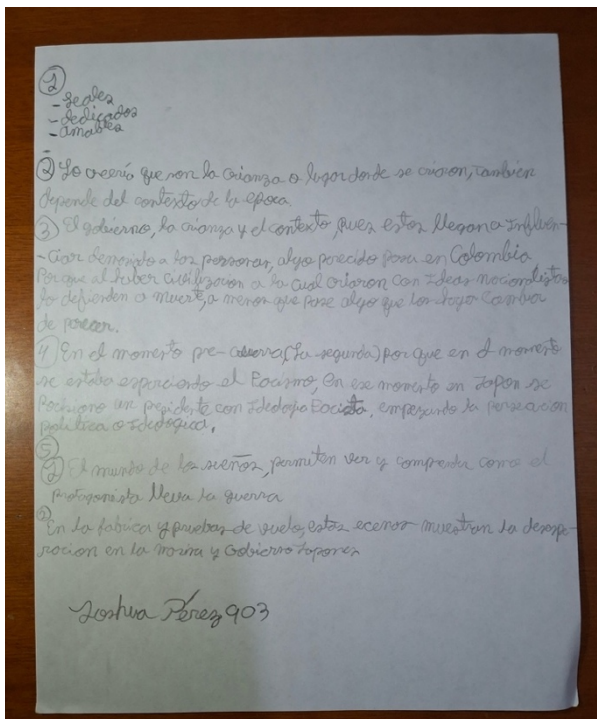 1
- Leales
- dedicados
- amables
-
2 Yo creería que son la crianza o lugar donde se crian, tambien
depende del contexto de la epoca.
3 El gobierno, la crianza y el contexto, pues estos llegan a Influen-
-ciar demasiado a las personas, algo parecido pasa en Colombia
Porque al haber civilizacion a la cual criaron con Ideas nacionalistas
lo defienden a muerte, a menos que pase algo que los haga cambiar
de parecer.
4 En el momento pre-Guerra, (La segunda) por que en el momento
se estaba esparciendo el Facismo, en ese momento en Japon se
un presidente con Ideologia Facista, empezando la persecucion
politica o Ideologica.
5
1 El mundo de los sueños, permiten ver y comprender como el
protagonista lleva la guerra
2 En la fabrica y pruebas de vuelo, estas ecenas muestran la desespe-
racion en la marina y Gobierno Japones
Joshua Pérez 903